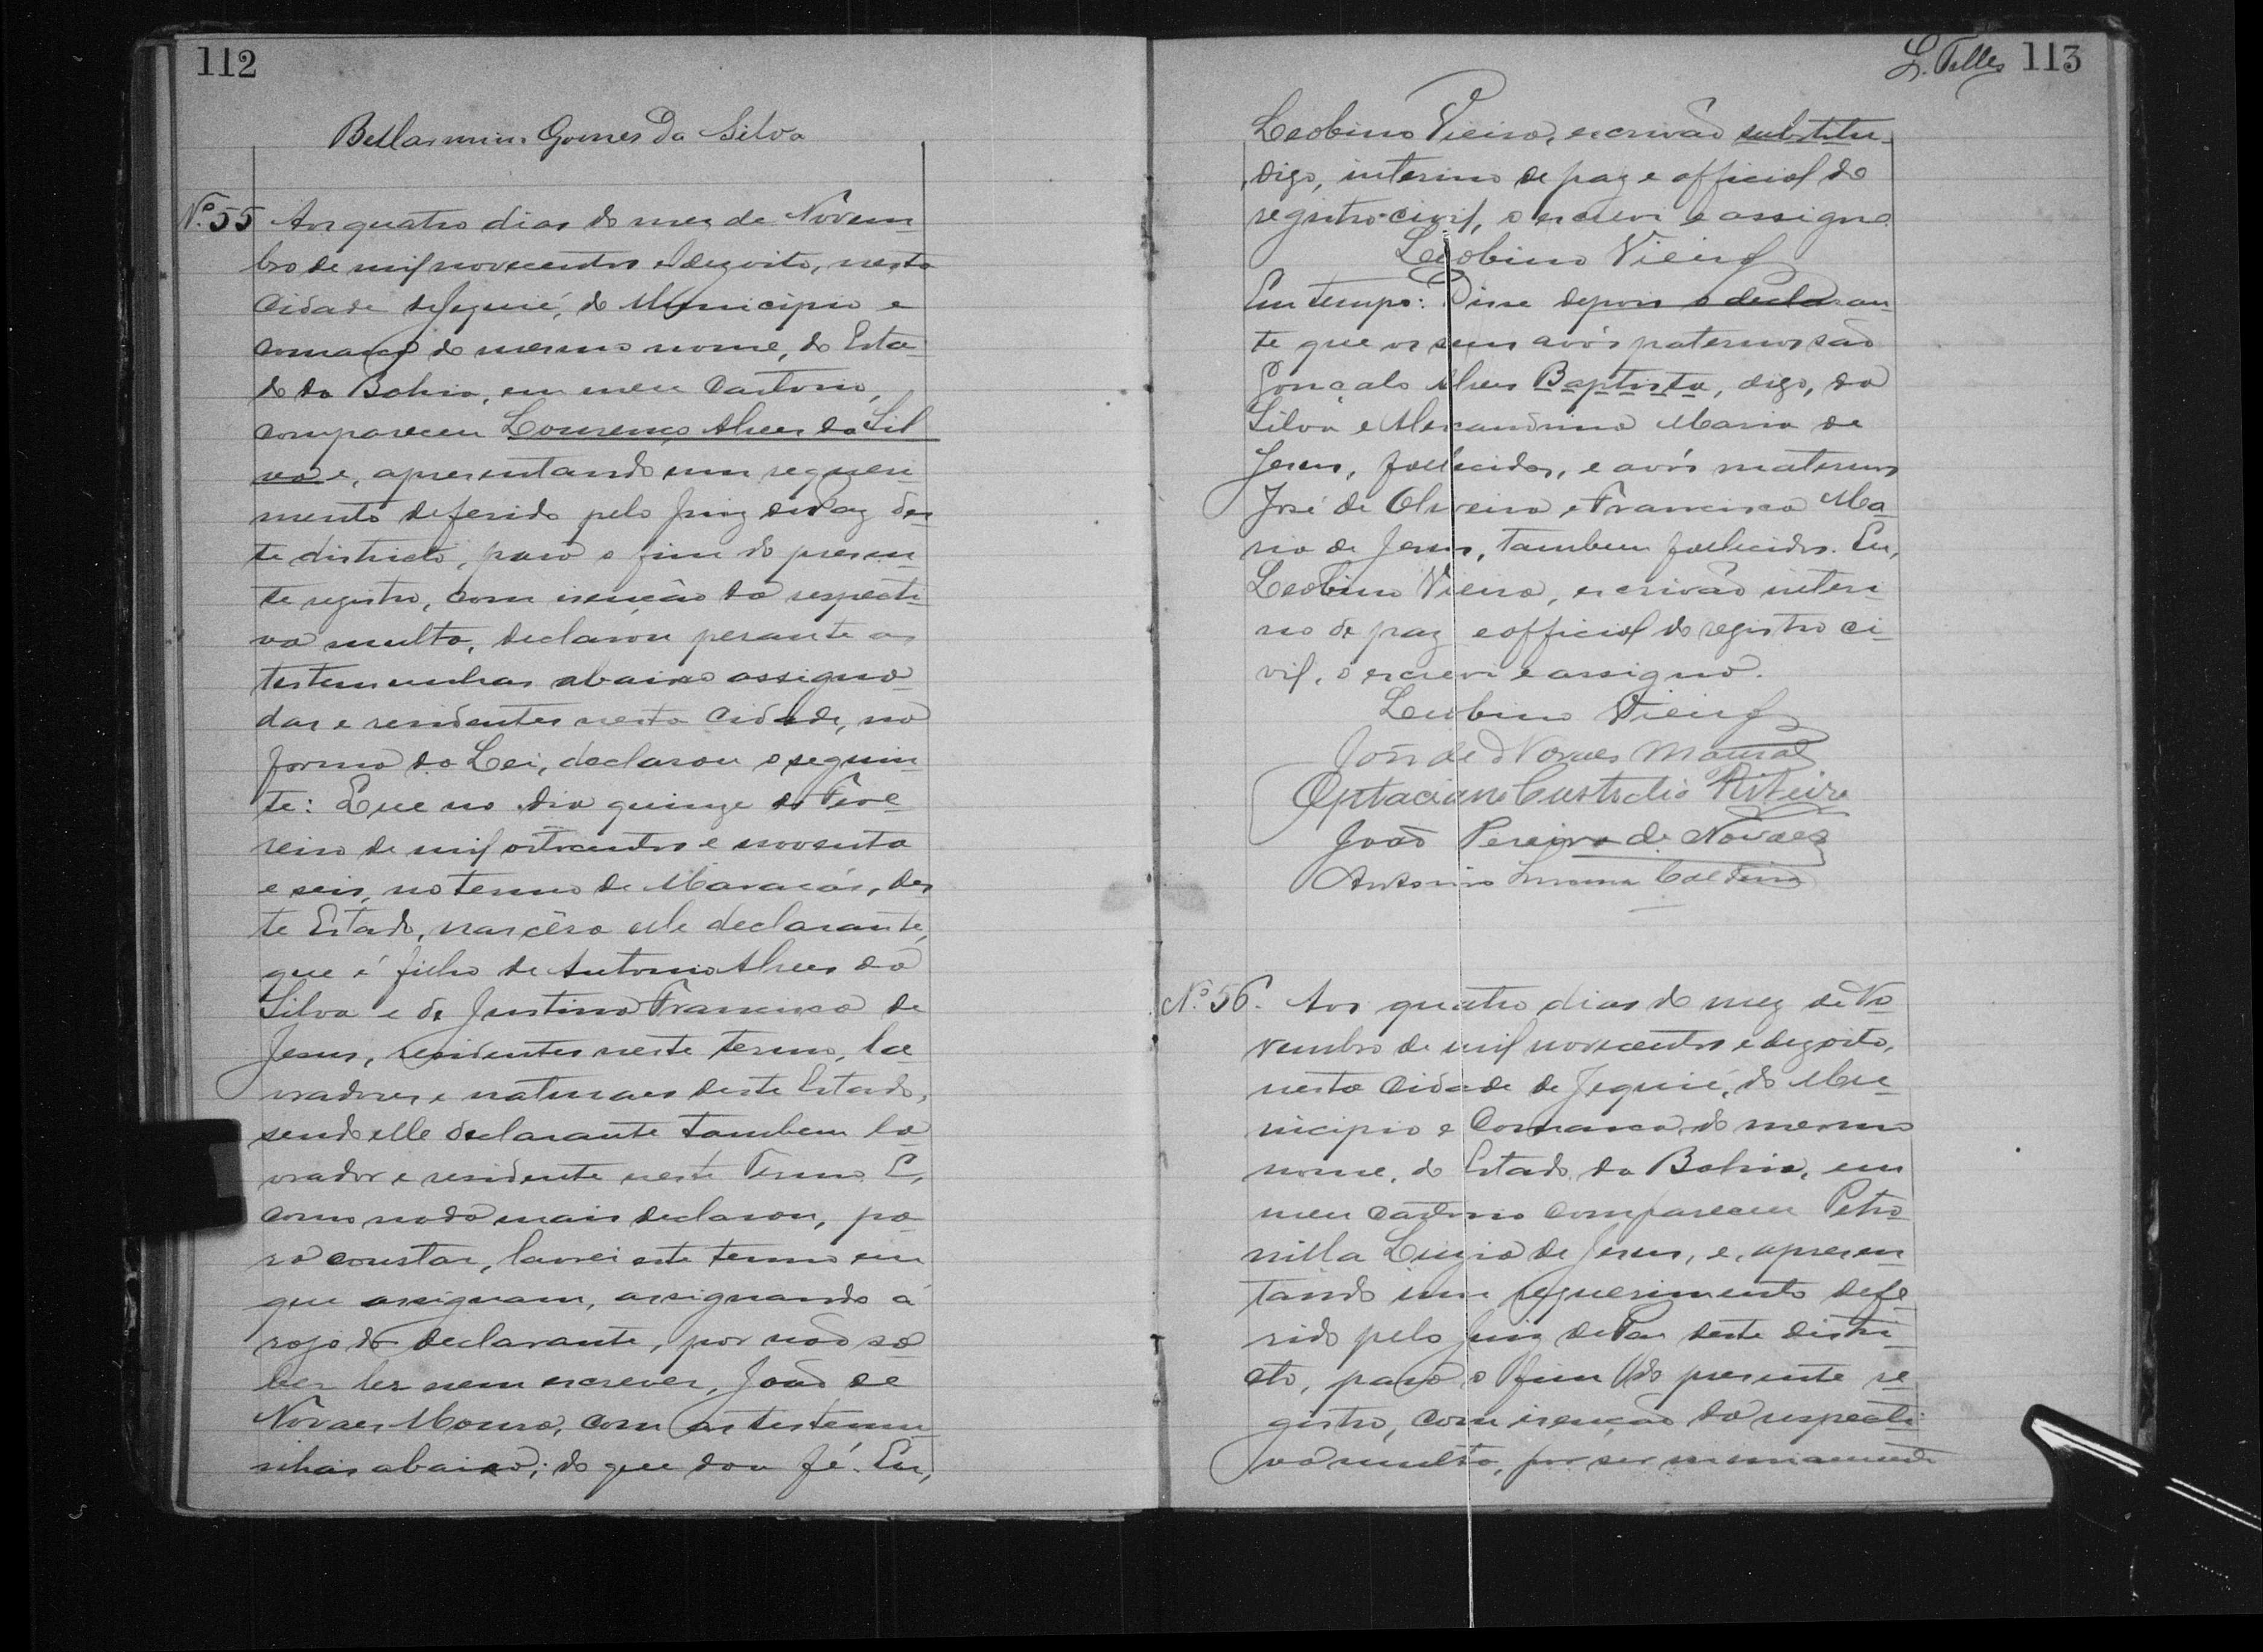 112
Bellarmino Gomes da Silva
Nº 55 Aos quatro dias do mez de Novem-
bro de mil novecentos e dezoito, nesta
Cidade de Jequié, do Municipio e
comarca do mesmo nome, do Esta-
do da Bahia, em meu Cartorio,
compareceu Lourenço Alves da Sil-
va e, apresentando um requeri-
mento deferido pelo Juiz de Paz des-
te districto, para o fim do presen-
te registro, com isenção da respecti-
va multa, declarou perante as
testemunhas abaixo assigna-
das e residentes nesta Cidade, na
forma da Lei, declarou o seguin-
te: Que no dia quinze de Feve-
reiro de mil oitocentos e noventa
e seis, no termo de Maracás, des-
te Estado, nascêra elle declarante,
que é filho de Antonio Alves da
Silva e de Justina Francisca de
Jesus, residentes neste termo, la-
vradores e naturaes deste Estado,
sendo elle declarante tambem la-
vrador e residente neste Termo E,
como nada mais declarou, pa-
ra constar, lavrei este termo em
que assignam, assignando á
rogo do declarante, por não sa-
ber ler nem escrever, João de
Novaes Moura, com as testemu-
nhas abaixo; do que dou fé. Eu,
L. Telles 113
Leobino Vieira, escrivão substitu-
digo, interino de paz e official do
registro civil, o escrevi e assigno.
Leobino Vieira
Em tempo: Disse depois o declaran-
te que os seus avós paternos são
Gonçalo Alves Baptista, digo, da
Silva e Alexandrina Maria de
Jesus, fallecidos, e avós maternos
José de Oliveira e Francisca Ma-
ria de Jesus, tambem fallecidos. Eu,
Leobino Vieira, escrivão interi-
no de paz e official do registro ci-
vil, o escrevi e assigno.
Leobino Vieira
João de Novaes Moura
Optaciano Custodio Ribeiro
João Pereira de Novaes
Antonio
Nº 56. Aos quatro dias do mez de No-
vembro de mil novecentos e dezoito,
nesta Cidade de Jequié, do Mu-
nicipio e Comarca do mesmo
nome, do Estado da Bahia, em
meu cartorio compareceu Petro-
nilla Luzia de Jesus, e, apresen-
tando um requerimento defe-
rido pelo Juiz de Paz deste distri-
cto, para o fim do presente re-
gistro, com isenção da respecti-
va multa, por ser summamente